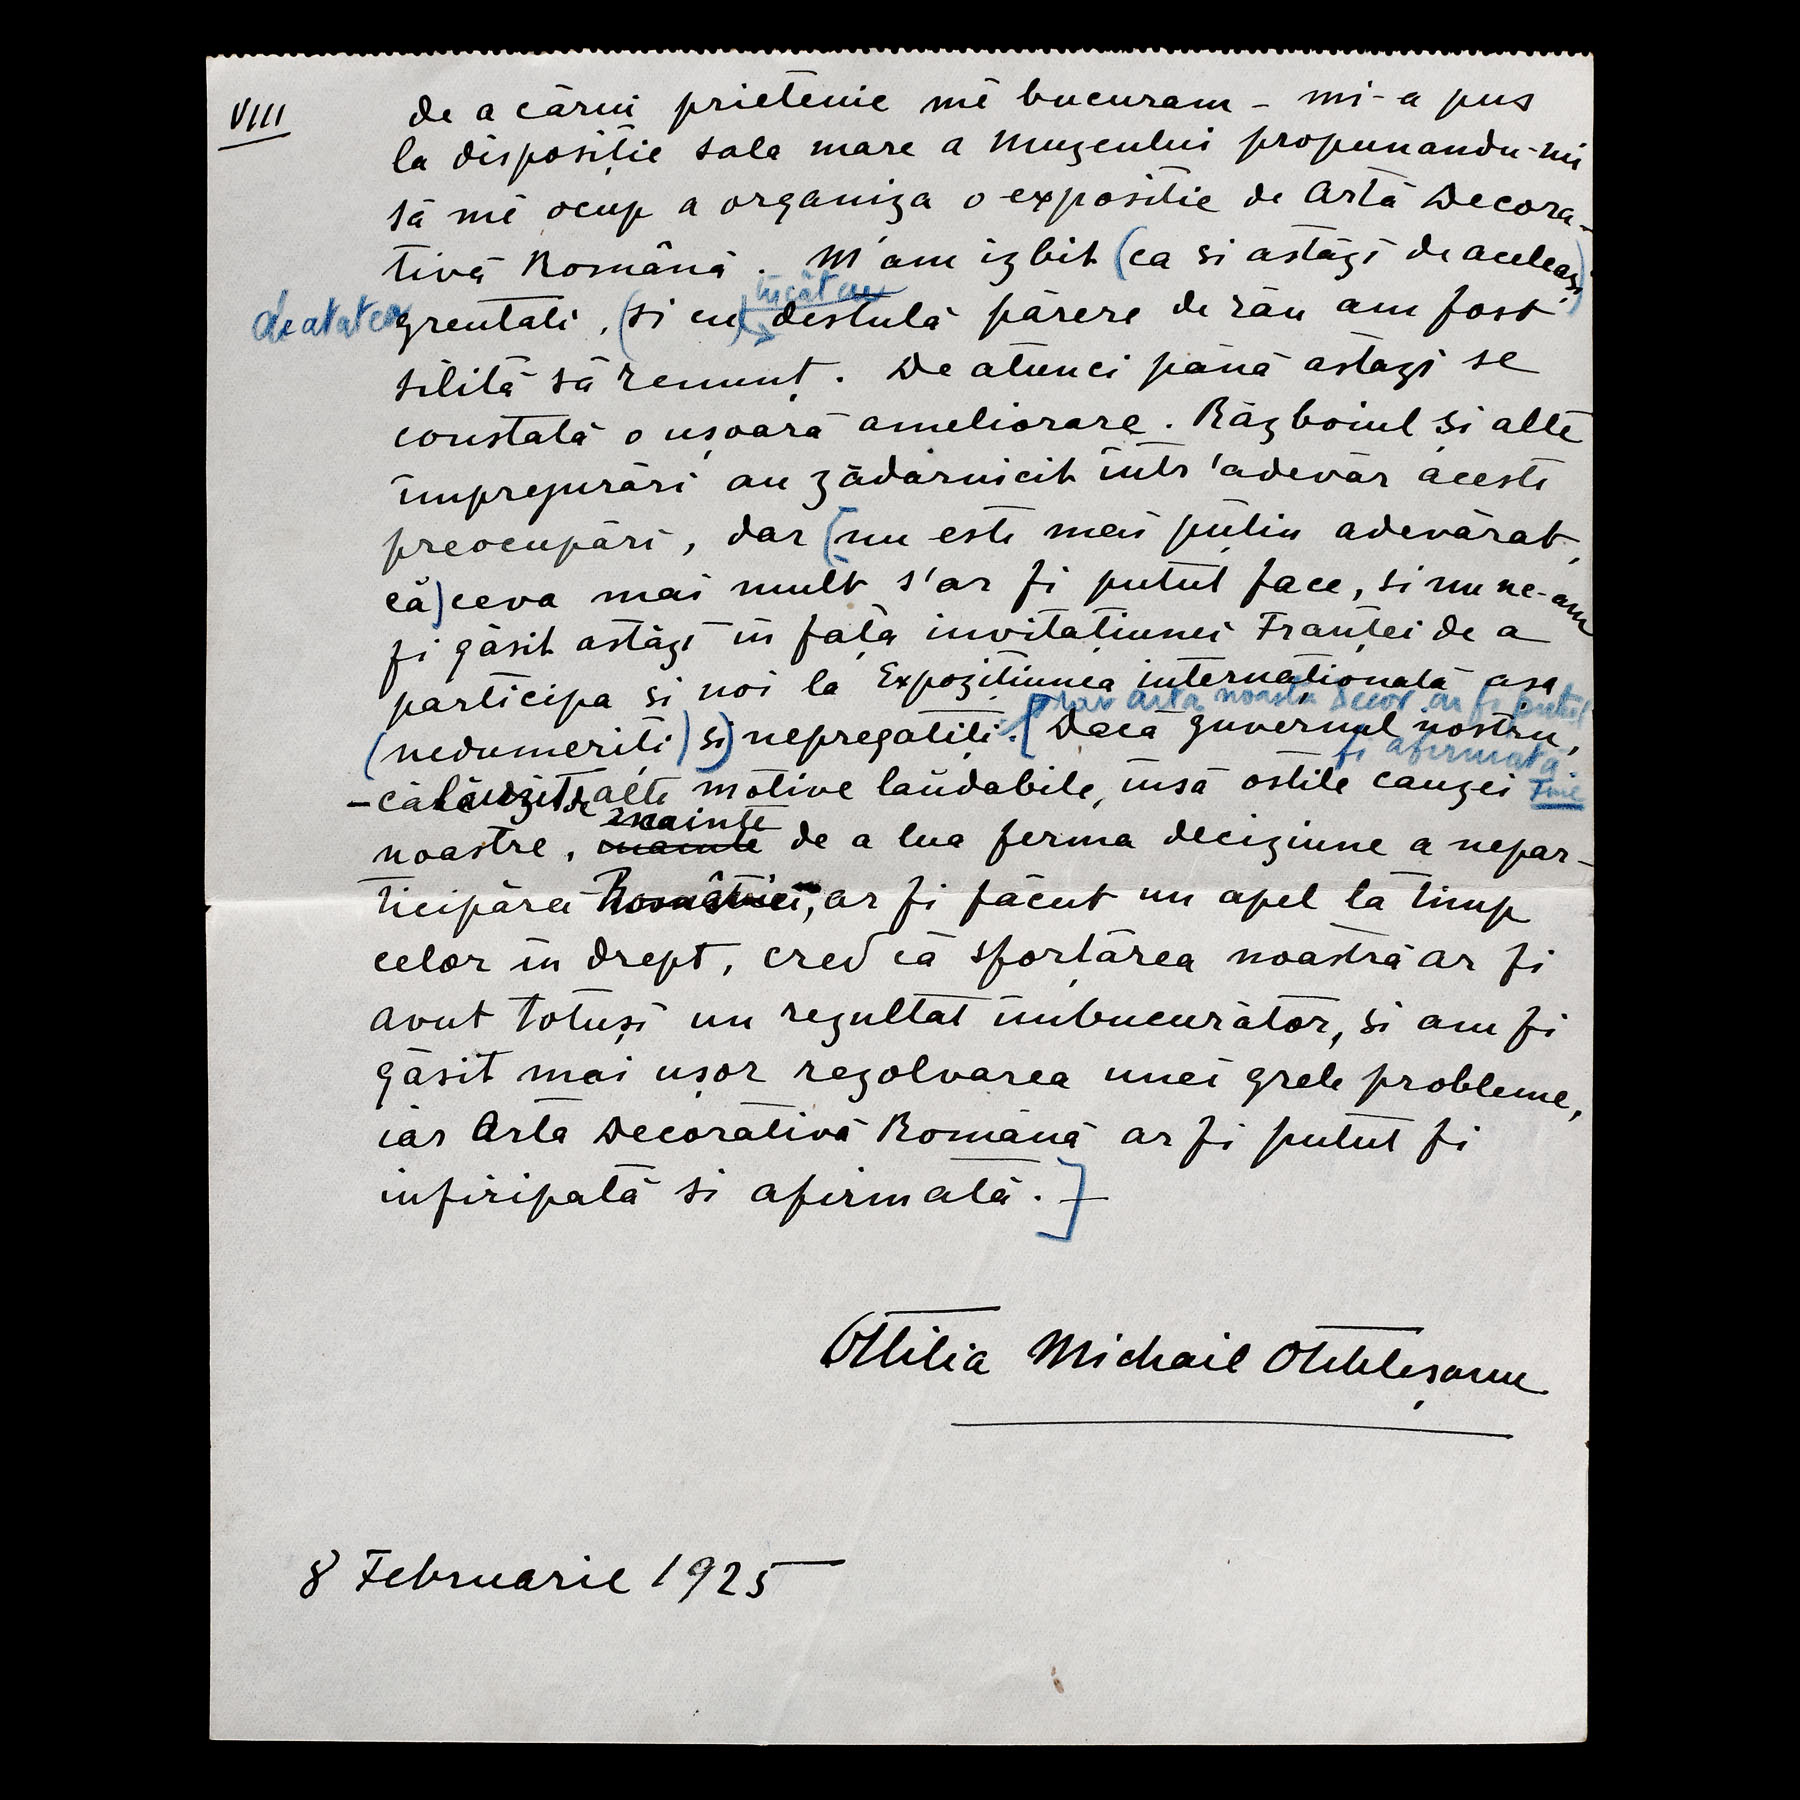 VIII
de a cărui prietenie mĕ bucuram - mi-a pus
la disposiție sala mare a Muzeului propunandu-mi
să mĕ ocup a organiza o expositie de Artă Decora-
tivă Română. M'am izbit (ca si astăzi de aceleași)
de atatea încât cu
greutati, (si cu) destulă părere de rău am fost
silită să renunț. De atunci până astazi se
constată o ușoară ameliorare. Războiul si alte
împrejurări au zădărnicit într'adevăr aceste
preocupări, dar (nu este mai puțin adevărat,
că) ceva mai mult s'ar fi putut face, si nu ne-am
fi găsit astăzi în fața invitațiunei Franței de a
participa si noi la Expozițiunea internațională asa
arta noastră Decor. ar fi putut
(nedumeriți) si) nepregatiți. [Dacă guvernul nostru,
fi afirmată.
- călăuzit de alte motive laudabile, însă ostile cauzei
Fine
înainte
noastre, inainte de a lua ferma deciziune a nepar-
ticipărei României, ar fi făcut un apel la timp
celor în drept, cred că sforțărea noastră ar fi
avut totuși un rezultat îmbucurător, si am fi
găsit mai ușor rezolvarea unei grele probleme,
iar Arta Decorativă Română ar fi putut fi
infiripată si afirmată.]
Ottilia Michail Otteleșanu
8 Februarie 1925